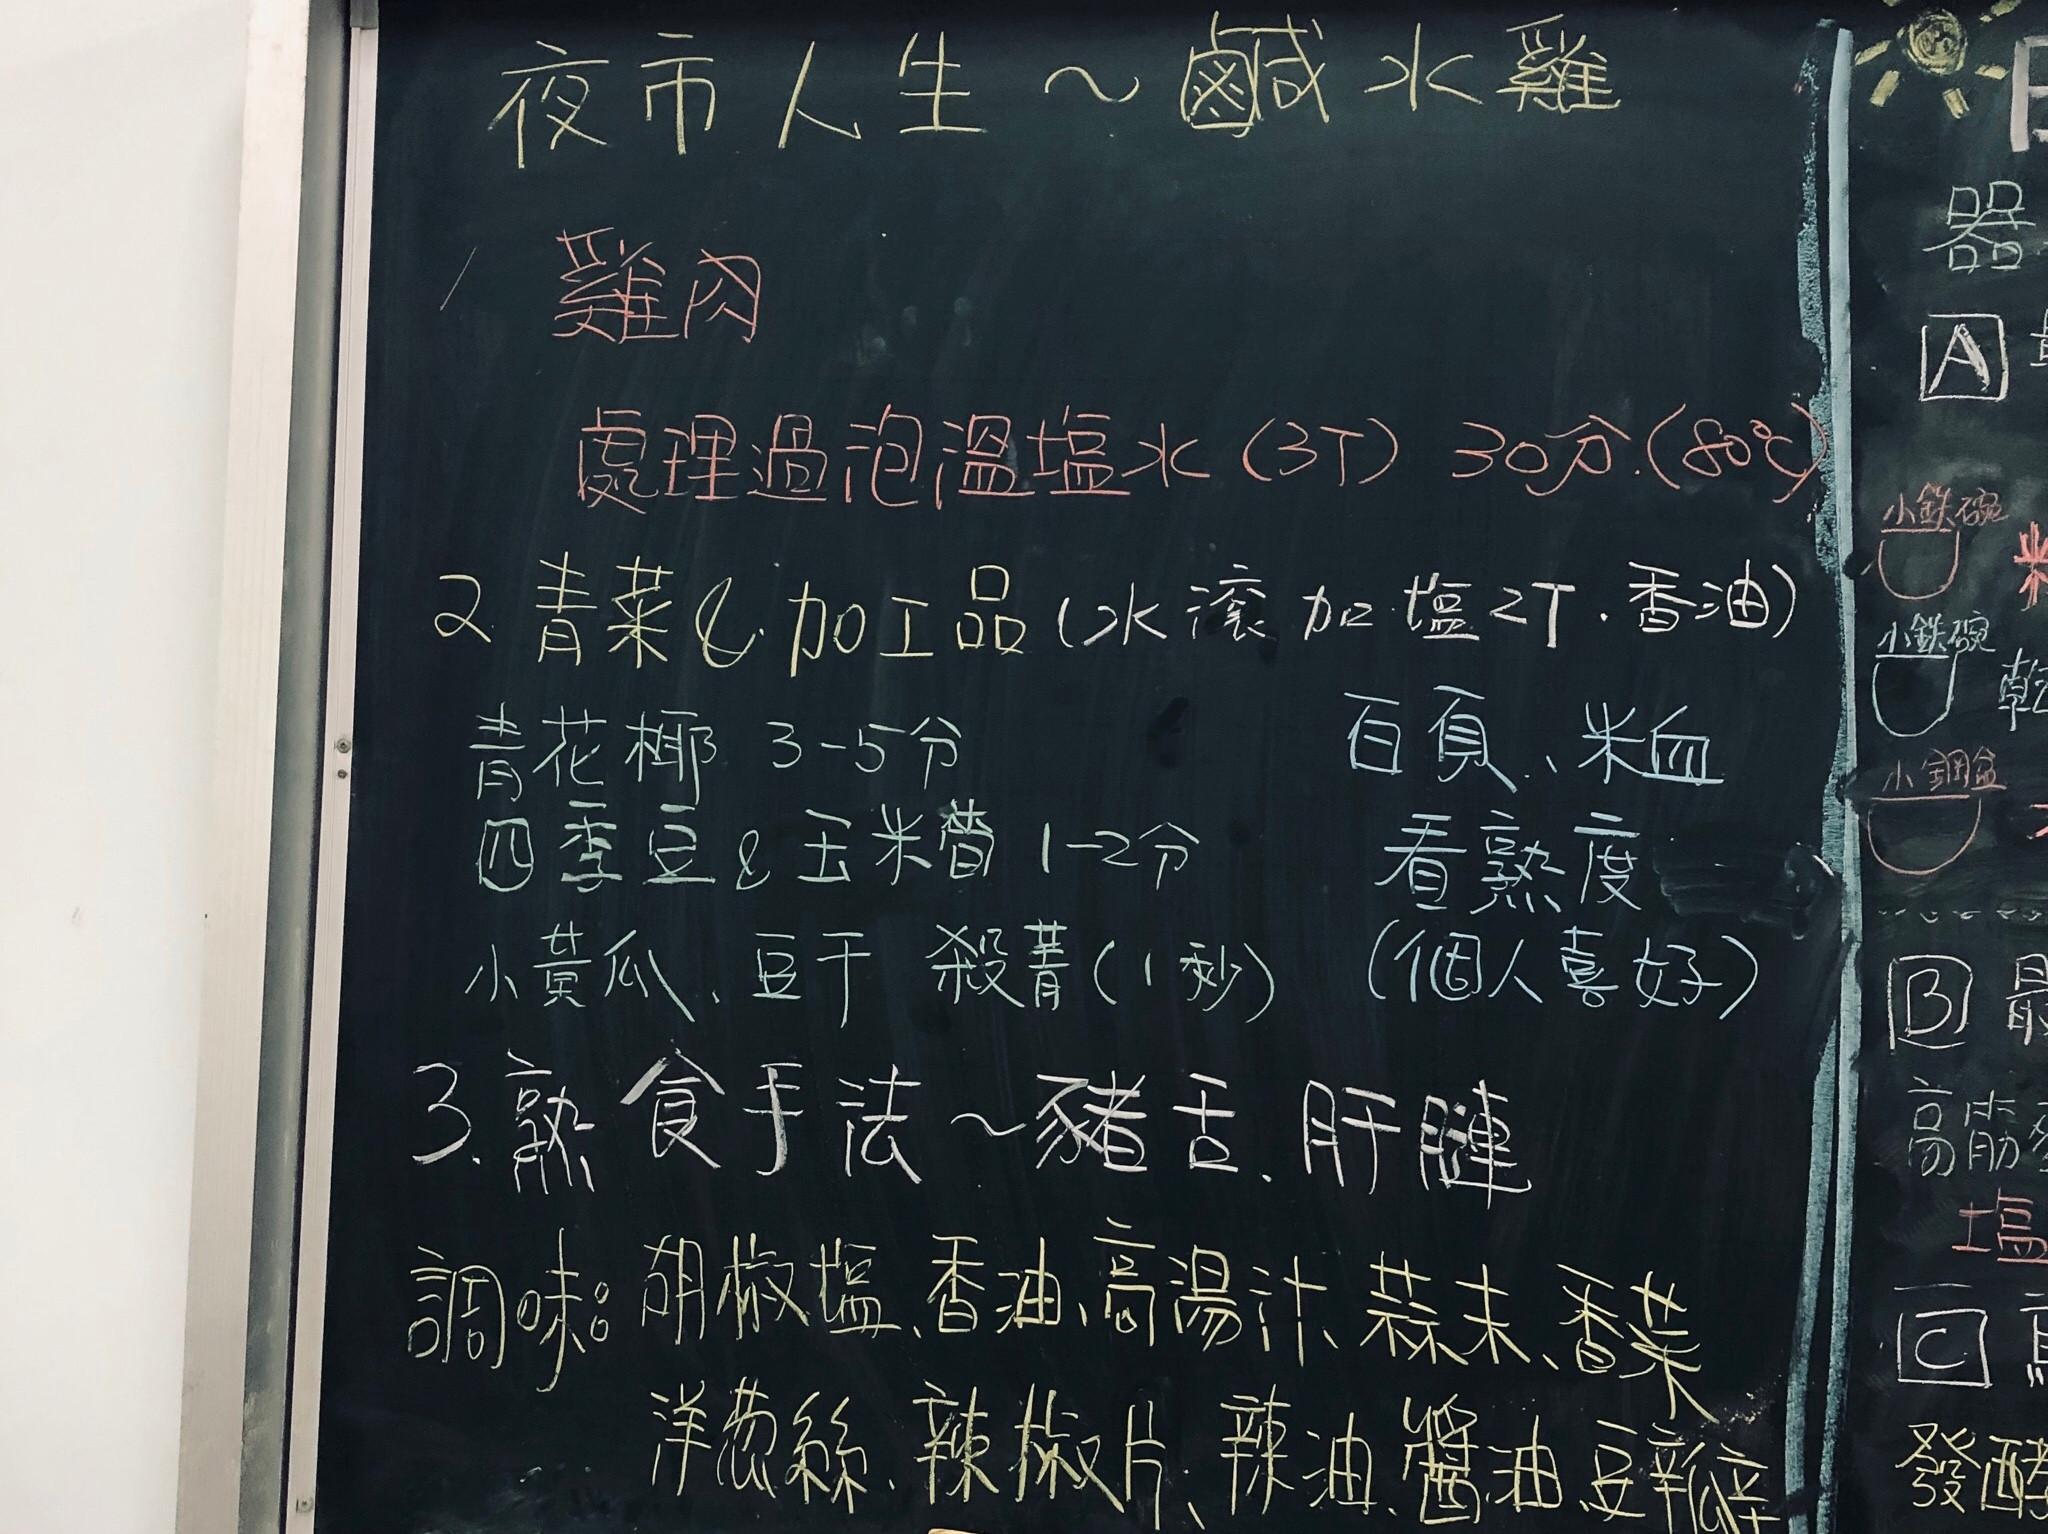 夜市人生～鹹水雞
1 雞肉
處理過泡溫塩水(3T) 30分.(80℃)
2 青菜&加工品(水滾加塩2T.香油)
青花椰 3-5分
四季豆&玉米筍 1-2分
小黃瓜、豆干 殺菁(1秒)
百頁、米血
看熟度
(個人喜好)
3.熟食手法～豬舌、肝腱
調味: 胡椒塩、香油、高湯汁、蒜末、香菜
洋葱絲、辣椒片、辣油、醬油、豆瓣
器
A
小鉄碗
小鉄碗
乾
小鋼盆
B 最
高筋
塩
C
發酵